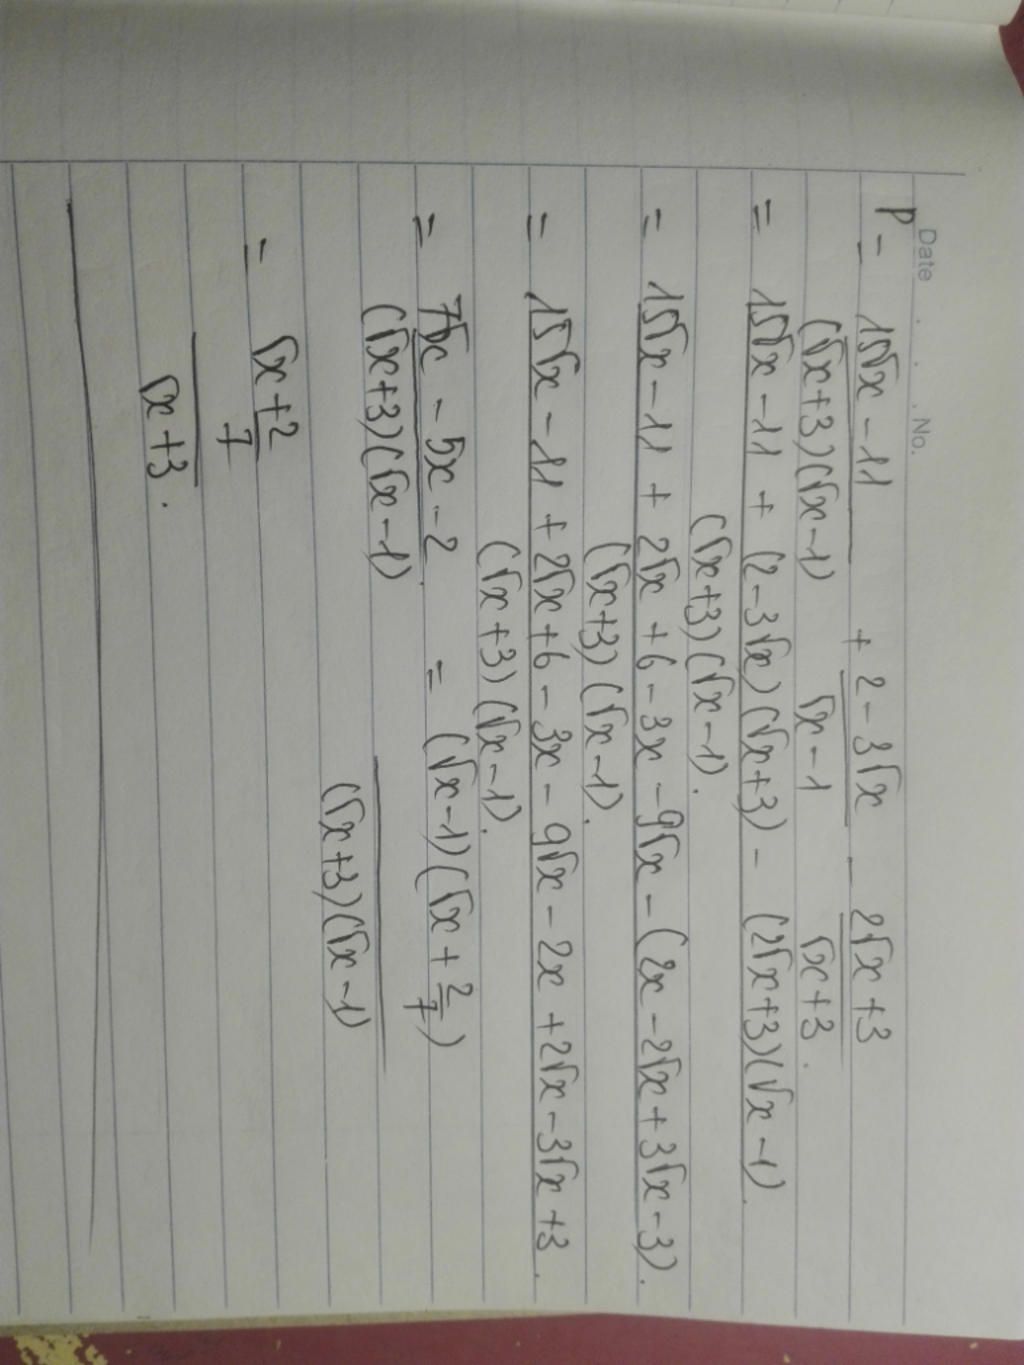 Date . . . No.
P = \frac{15\sqrt{x} - 11}{(\sqrt{x}+3)(\sqrt{x}-1)} + \frac{2 - 3\sqrt{x}}{\sqrt{x} - 1} - \frac{2\sqrt{x} + 3}{\sqrt{x} + 3}.
= \frac{15\sqrt{x} - 11 + (2 - 3\sqrt{x})(\sqrt{x}+3) - (2\sqrt{x}+3)(\sqrt{x}-1)}{(\sqrt{x}+3)(\sqrt{x}-1)}.
= \frac{15\sqrt{x} - 11 + 2\sqrt{x} + 6 - 3x - 9\sqrt{x} - (2x - 2\sqrt{x} + 3\sqrt{x} - 3)}{(\sqrt{x}+3)(\sqrt{x}-1)}.
= \frac{15\sqrt{x} - 11 + 2\sqrt{x} + 6 - 3x - 9\sqrt{x} - 2x + 2\sqrt{x} - 3\sqrt{x} + 3}{(\sqrt{x}+3)(\sqrt{x}-1)}.
= \frac{7\sqrt{x} - 5x - 2}{(\sqrt{x}+3)(\sqrt{x}-1)} = \frac{(\sqrt{x}-1)(\sqrt{x} + \frac{2}{7})}{(\sqrt{x}+3)(\sqrt{x}-1)}
= \frac{\sqrt{x} + \frac{2}{7}}{\sqrt{x} + 3}.